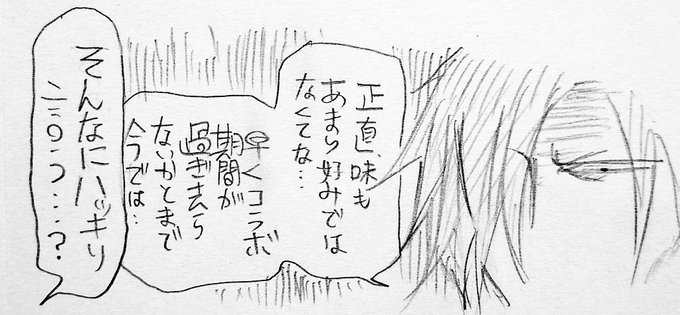 正直、味も
あまり好みでは
なくてな…
早くコラボ
期間が
過ぎ去ら
ないかとまで
今では…
そんなにハッキリ
言う…?